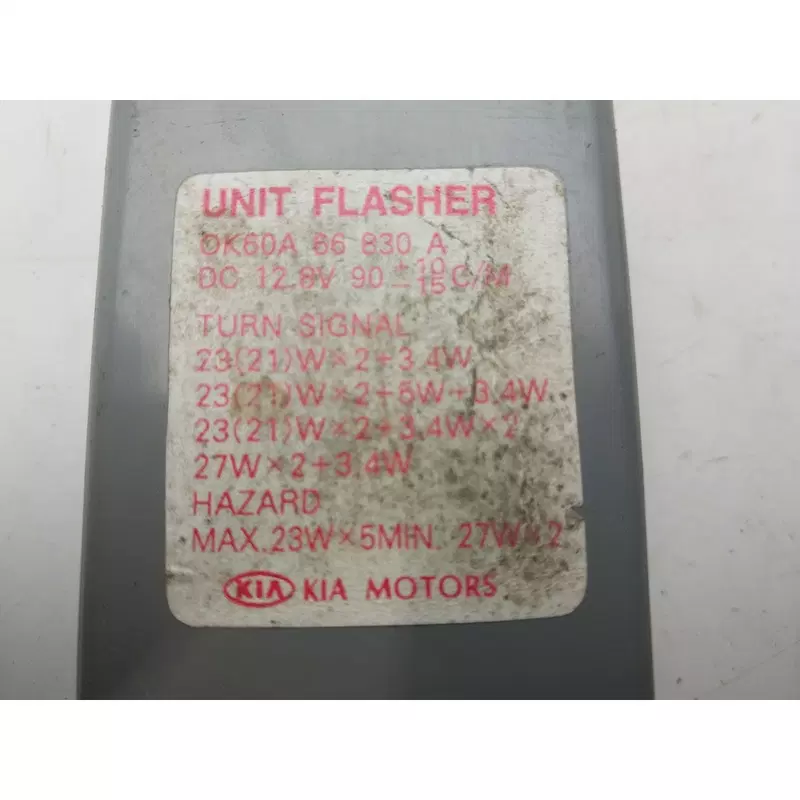 UNIT FLASHER
OK60A 66 830 A
DC 12.8V 90 +10 -15 C/M
TURN SIGNAL
23(21)W×2+3.4W
23(21)W×2+5W+3.4W
23(21)W×2+3.4W×2
27W×2+3.4W
HAZARD
MAX.23W×5MIN. 27W×2
KIA KIA MOTORS